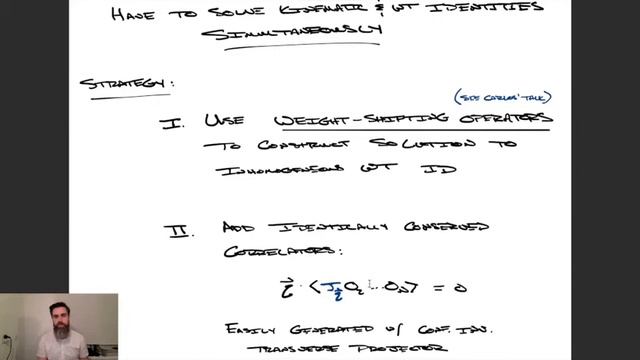 HAVE TO SOLVE KINEMATIC & WT IDENTITIES
SIMULTANEOUSLY
STRATEGY:
(SEE CARLOS' TALK)
I. USE WEIGHT-SHIFTING OPERATORS
TO CONSTRUCT SOLUTION TO
INHOMOGENEOUS WT ID
II. ADD IDENTICALLY CONSERVED
CORRELATORS:
⟨J O₂ ... O ⟩ = 0
EASILY GENERATED W/ CONF. INV.
TRANSVERSE PROJECTOR